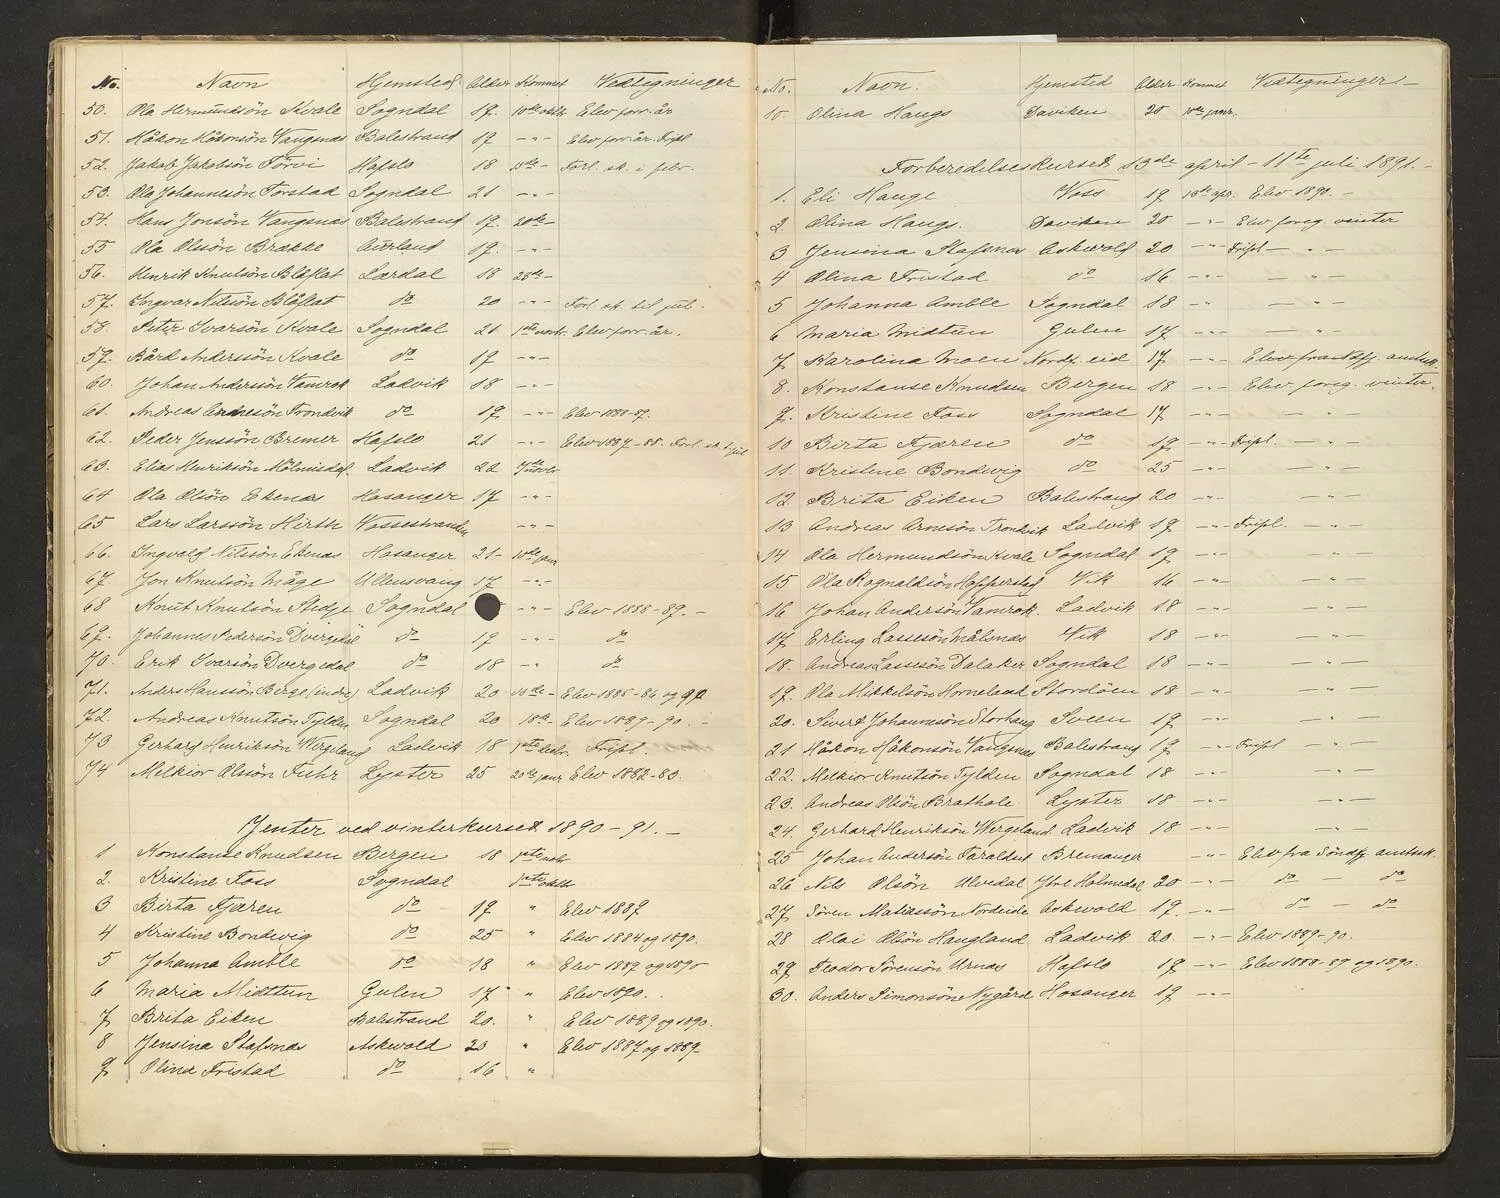 No. Navn Hjemsted Alder Kommet Vedtegninger
50. Ola Hermundsön Kvale Sogndal 19. 10de oktb. Elev forr. år
51. Håkon Håkonsön Vangsnes Balestrand 19 -"- Elev forr. år. Fripl
52. Jakob Jakobsön Törvi Hafslo 18 Forl. sk. i febr.
53. Ola Johannesön Forstad Sogndal 21 -"-
54. Hans Jonsön Vangsnes Balestrand 19. 20de
55 Ola Olsön Brække Aurland 19. -"-
56. Henrik Knutsön Blåflat Lærdal 18 28de
57. Ingvar Nilsön Blåflat do 20 -"- Forl. sk. til jul.
58. Peter Ivarsön Kvale Sogndal 21 1ste novbr. Elev forr. år.
59. Bård Anderssön Kvale do 19 -"-
60. Johan Andersön Vamrak Ladvik 18 -"-
61. Andreas Arnesön Trondvik do 19 -"- Elev 1888-89.
62. Peder Jenssön Bremer Hafslo 21 -"- Elev 1887-88. Forl. sk. t. jul
63. Elias Henriksön Ladvik 22 7de novbr
64 Ola Olsön Ekenes Hosanger 17 -"-
65 Lars Larssön Hirth Vossestranden -"-
66. Ingvald Nilssön Ekenes Hosanger 21 10de janr
67. Jon Knutsön Måge Ullensvang 17 -"-
68 Knut Knutsön Stedje Sogndal -"- Elev 1888-89.-
69. Johannes Pedersön Dvergedal do 19 -"- do
70. Erik Ivarsön Dvergedal do 18 -"- do
71. Anders Hanssön Berge (indre) Ladvik 20 Elev 1885-86 og 90
72. Andreas Knutsön Tylden Sogndal 20 18de Elev 1889-90.-
73 Gerhard Henriksön Wergeland Ladvik 18 1ste decbr. Fripl.
74 Melkior Olssön Fuhr Lyster 25 20de janr Elev 1882-83.
Jenter ved vinterkurset 1890-91.-
1 Konstanse Knudsen Bergen 18 1ste oktb
2. Kristine Foss Sogndal 1ste oktb
3 Birta Fjæren do 19 " Elev 1889
4 Kristine Bondevig do 25 " Elev 1884 og 1890.
5 Johanna Amble do 18 " Elev 1889 og 1890
6 Maria Midttun Gulen 17 " Elev 1890.
7 Brita Eiken Balestrand 20. " Elev 1889 og 1890.
8 Jensina Stafsnes Askvold 20 " Elev 1887 og 1889
9 Olina Fristad do 16 "
No. Navn. Hjemsted Alder Kommet Vedtegninger.-
10. Olina Haugs Daviken 20 10de janr.
Forberedelseskurset 13de april - 11te juli 1891.-
1. Eli Hauge Voss 19 13de apr. Elev 1890.-
2 Olina Haugs. Daviken 20 -"- Elev foreg. vinter
3 Jensina Stafsnes Askvold 20 -"- Fripl - " -
4 Olina Fristad do 16 -"- - " -
5 Johanna Amble Sogndal 18 -"- - " -
6 Maria Midtun Gulen 17 -"- - " -
7 Karolina Moen Nordfj. eid 17 -"- Elev fra Nordfj. amtssk.
8. Konstanse Knudsen Bergen 18 -"- Elev foreg. vinter.
9. Kristine Foss Sogndal 17 -"- - " -
10 Birta Fjæren do 19 -"- Fripl. - " -
11. Kristine Bondevig do 25 -"- - " -
12. Brita Eiken Balestrand 20 -"- - " -
13 Andreas Arnesön Trondvik Ladvik 19 -"- Fripl. - " -
14 Ola Hermundsön Kvale Sogndal 19 -"- - " -
15 Ola Rognaldsön Hopperstad Vik 16 -"- - " -
16 Johan Andersön Vamrak. Ladvik 18 -"- - " -
17 Erling Lassesön Målsnes Vik 18 -"- - " -
18. Andreas Lassesön Dalaker Sogndal 18 -"- - " -
19. Ola Mikkelsön Horneland Stordöen 18 -"- - " -
20. Sivert Johannesön Storhaug Sveen 19 -"- - " -
21 Håkon Håkonsön Vangsnes Balestrand 19 -"- Fripl - " -
22. Melkior Knutsön Tylden Sogndal 18 -"- - " -
23. Andreas Olsön Brathole Lyster 18 -"- - " -
24. Gerhard Henriksön Wergeland Ladvik 18 -"- - " -
25 Johan Andersön Faraldset Bremanger -"- Elev fra Söndfj. amtssk.
26 Nils Olsön Ulvedal Ytre Holmedal 20 -"- do - do
27 Sören Matiassön Nordeide Askvold 19. -"- do - do
28 Olai Olsön Haugland Ladvik 20. -"- Elev 1889-90.
29 Teodor Sörensön Urnes Hafslo 19 -"- Elev 1888-89 og 1890.
30. Anders Simonsöne Nygård Hosanger 19 -"-